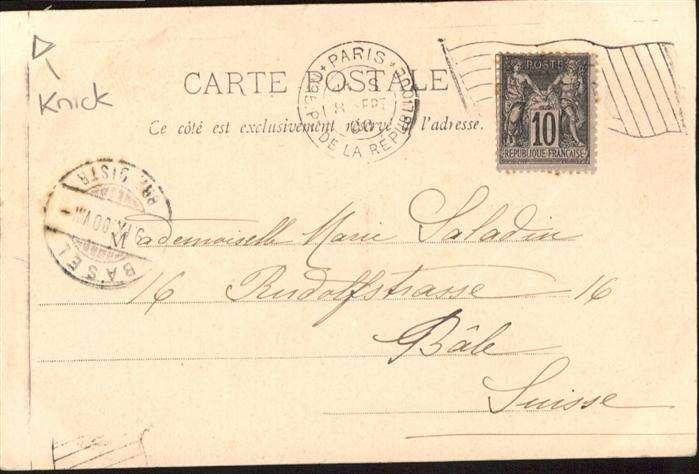 Knick
CARTE POSTALE
Ce côté est exclusivement réservé à l'adresse.
PARIS
PL. DE LA REPUBLIQUE
SEPT
00
POSTE
10
REPUBLIQUE FRANÇAISE
BASEL
BR. DISTR.
IX.00
Mademoiselle Marie Saladin
16 Rudolfstrasse 16
Bâle
Suisse